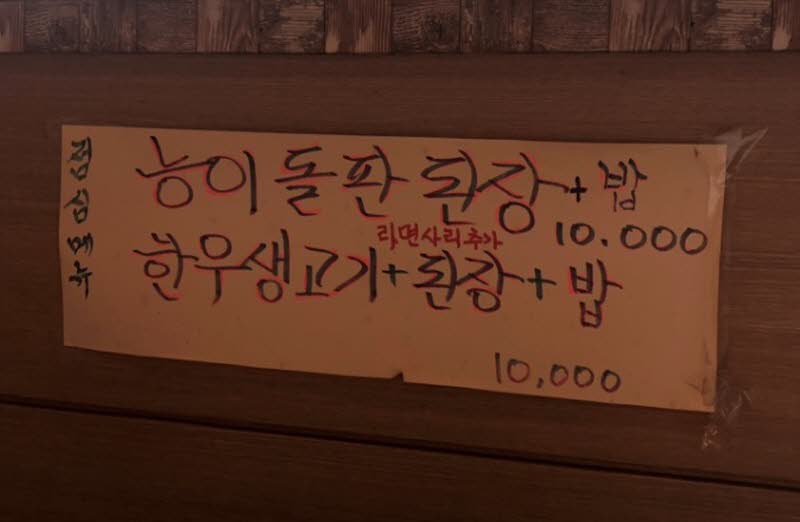 능이 돌판 된장 + 밥
10.000
라면사리추가
한우생고기 + 된장 + 밥
10,000